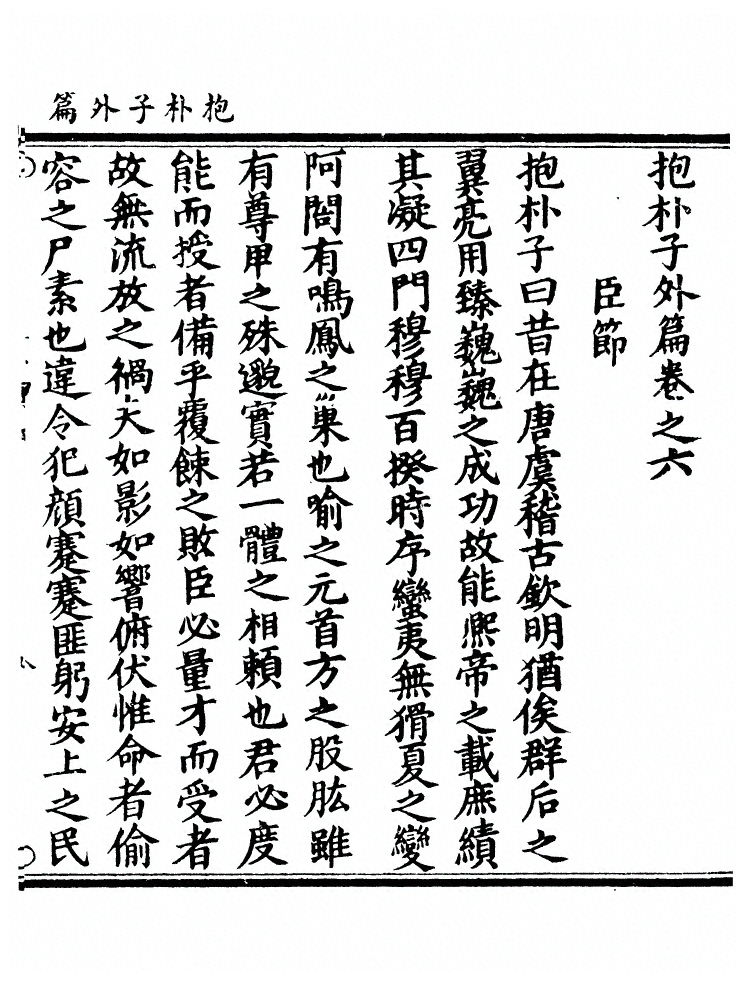 抱朴子外篇
抱朴子外篇卷之六
臣節
抱朴子曰昔在唐虞稽古欽明猶俟群后之
翼亮用臻巍巍之成功故能熙帝之載庶績
其凝四門穆穆百揆時序蠻夷無猾夏之變
阿閣有鳴鳳之巢也喻之元首方之股肱雖
有尊甲之殊邈實若一體之相賴也君必度
能而授者備乎覆餗之敗臣必量才而受者
故無流放之禍夫如影如響俯伏惟命者偷
容之尸素也違令犯顔蹇蹇匪躬安上之民